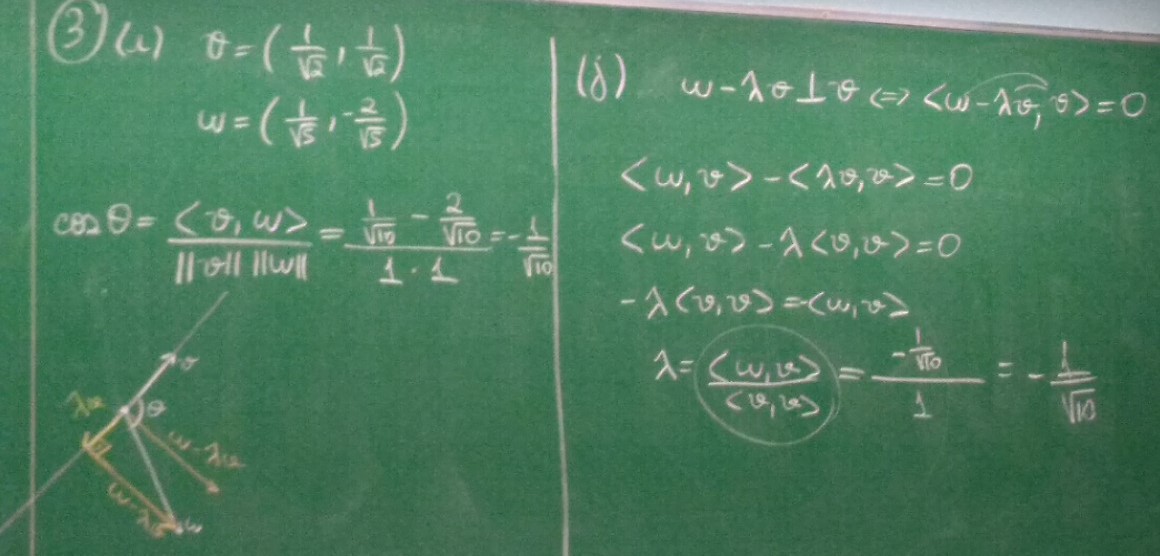 ③ (i) v = (1/√2, 1/√2)
w = (1/√5, -2/√5)
cos θ = <v, w> / ||v|| ||w|| = (1/√10 - 2/√10) / 1·1 = -1/√10
v
λv
θ
w-λv
w-λv
w
(j) w-λv ⊥ v <=> <w-λv, v> = 0
<w, v> - <λv, v> = 0
<w, v> - λ<v, v> = 0
-λ<v, v> = -<w, v>
λ = <w, v> / <v, v> = (-1/√10) / 1 = -1/√10